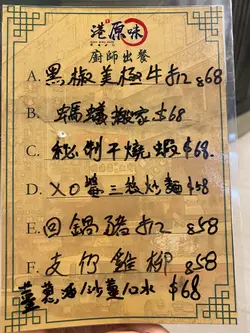 港原味
廚師出餐
A. 黑椒美極牛扒 $68
B. 螞蟻搬家 $68
C. 秘制干燒蝦 $68.
D. XO醬三䒧炒麵 $58
E. 回鍋豬扒 $58
F. 支竹雞柳 $58
薑蔥油/沙薑/口水 $68